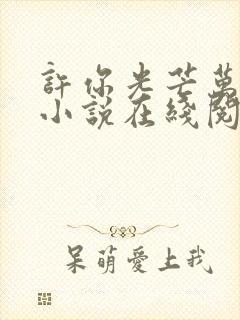 許你光芒萬
小說在綫閱
呆萌愛上我